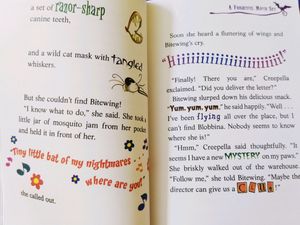 a set of razor-sharp
canine teeth,
and a wild cat mask with tangled
whiskers.
But she couldn't find Bitewing!
"I know what to do," she said. She took a
little jar of mosquito jam from her pocket
and held it in front of her.
Tiny little bat of my nightmares
where are you?
she called out.
A Fabumouse Movie Set
Soon she heard a fluttering of wings and
Bitewing's cry.
"Hiiiiiiiiiiiiiiiiiiiii!"
"Finally! There you are," Creepella
exclaimed. "Did you deliver the letter?"
Bitewing slurped down his delicious snack.
"Yum, yum, yum," he said happily. "Well . . .
I've been flying all over the place, but I
can't find Blobbina. Nobody seems to know
where she is!"
"Hmm," Creepella said thoughtfully. "It
seems I have a new MYSTERY on my paws."
She briskly walked out of the warehouse.
"Follow me," she told Bitewing. "Maybe the
director can give us a Clue!"